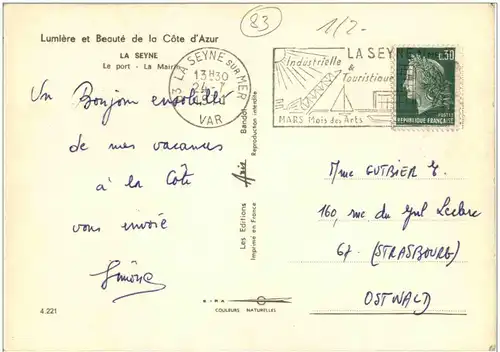 83
1/2-
Lumière et Beauté de la Côte d'Azur
LA SEYNE
Le port - La Mairie
83 LA SEYNE SUR MER
13H30
24-7
VAR
LA SEYNE
Industrielle
&
Touristique
MARS Mois des Arts
0.30
POSTES
REPUBLIQUE FRANÇAISE
Un Bonjour ensoleillé
de mes vacances
à la Côte
vous envoie
Simone
Les Editions Aris Bandol
Imprimé en France
Reproduction interdite
Mme GUTBIER E.
160, rue du Gnl Leclerc
67. (STRASBOURG)
OSTWALD
COULEURS NATURELLES
4.221